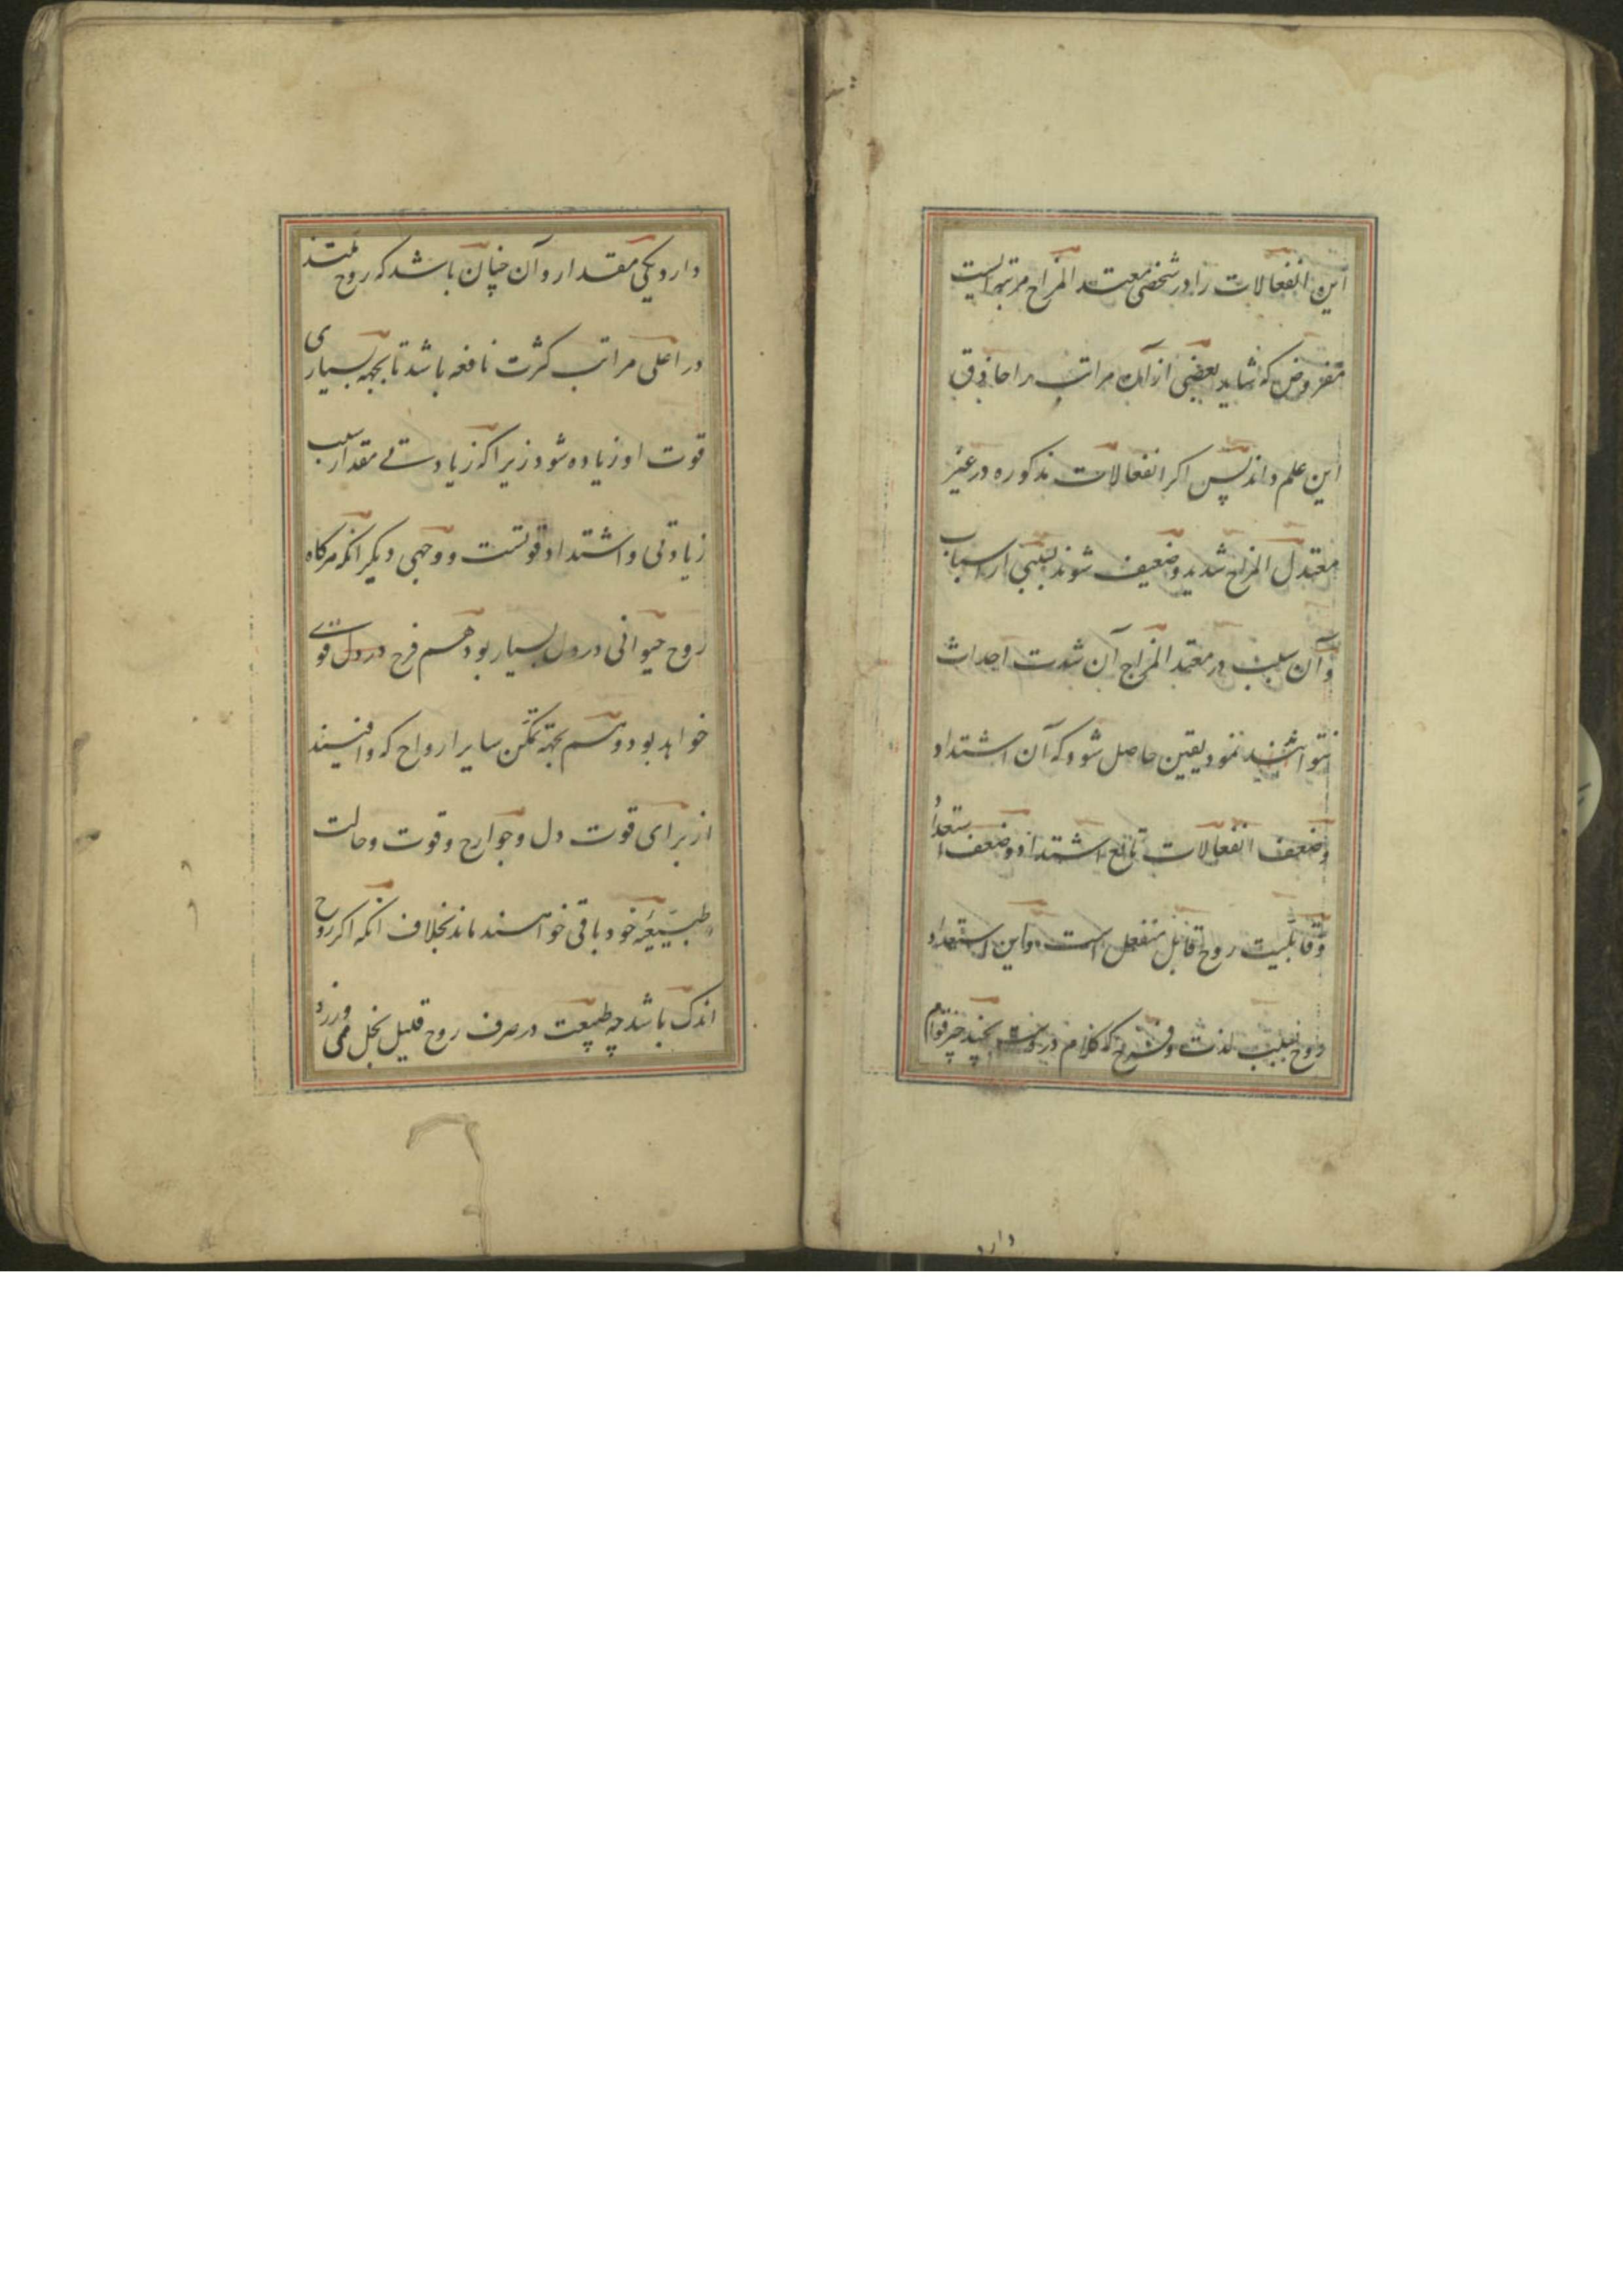 این انفعالات را در شخصی معتدل المزاج مرتبه ایست
مفروض که شاید بعضی از آن مراتب را حاذق
این علم داند پس اکر انفعالات مذکوره در غیر
معتدل المزاج شدید و ضعیف شوند بسببی از اسباب
و آن سبب در معتدل المزاج آن شدت احداث
نتواند نمود یقین حاصل شود که آن اشتداد
و ضعف انفعالات تابع اشتداد و ضعف استعداد
و قابلیت روح قابل منفعل است و این استعداد
روح بسبب لذت و فرح که کلام در وست بچند چیز قوام
دارد
دارد یکی مقدار و آن چنان باشد که روح ممتد
در اعلی مراتب کثرت نافعه باشد تا بجهه بسیاری
قوت او زیاده شود زیرا که زیادتی مقدار سبب
زیادتی و اشتداد قوتست و وجهی دیکر انکه هرکاه
روح حیوانی در دل بسیار بود هم فرح در دل قوی
خواهد بود و هم بجهة تمکن سایر ارواح که وافیند
از برای قوت دل و جوارح و قوت و حالت
طبیعیه خود باقی خواهند ماند بخلاف انکه اکر روح
اندک باشد چه طبیعت در صرف روح قلیل بخل می ورزد